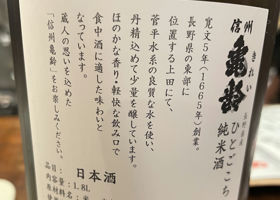 信州
亀齢
きれい
長野県産
ひとごこち
純米酒
寛文5年(1665年)創業。
長野県の東部に
位置する上田にて、
菅平水系の良質な水を使い、
丹精込めて少量を醸しています。
ほのかな香り・軽快な飲み口で
食中酒に適した味わいと
なっています。
蔵人の思いを込めた
「信州亀齢」をお楽しみください。
日本酒
品目:日本酒
内容量:1.8L
原材料名:米